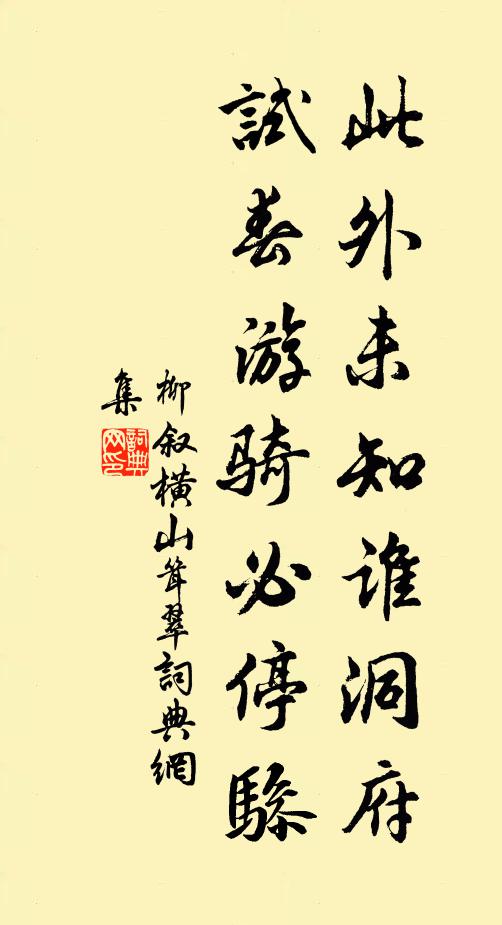 此外未知誰洞府
試春游騎必停驂
柳叙橫山聳翠詞典網
集
詞典
网印